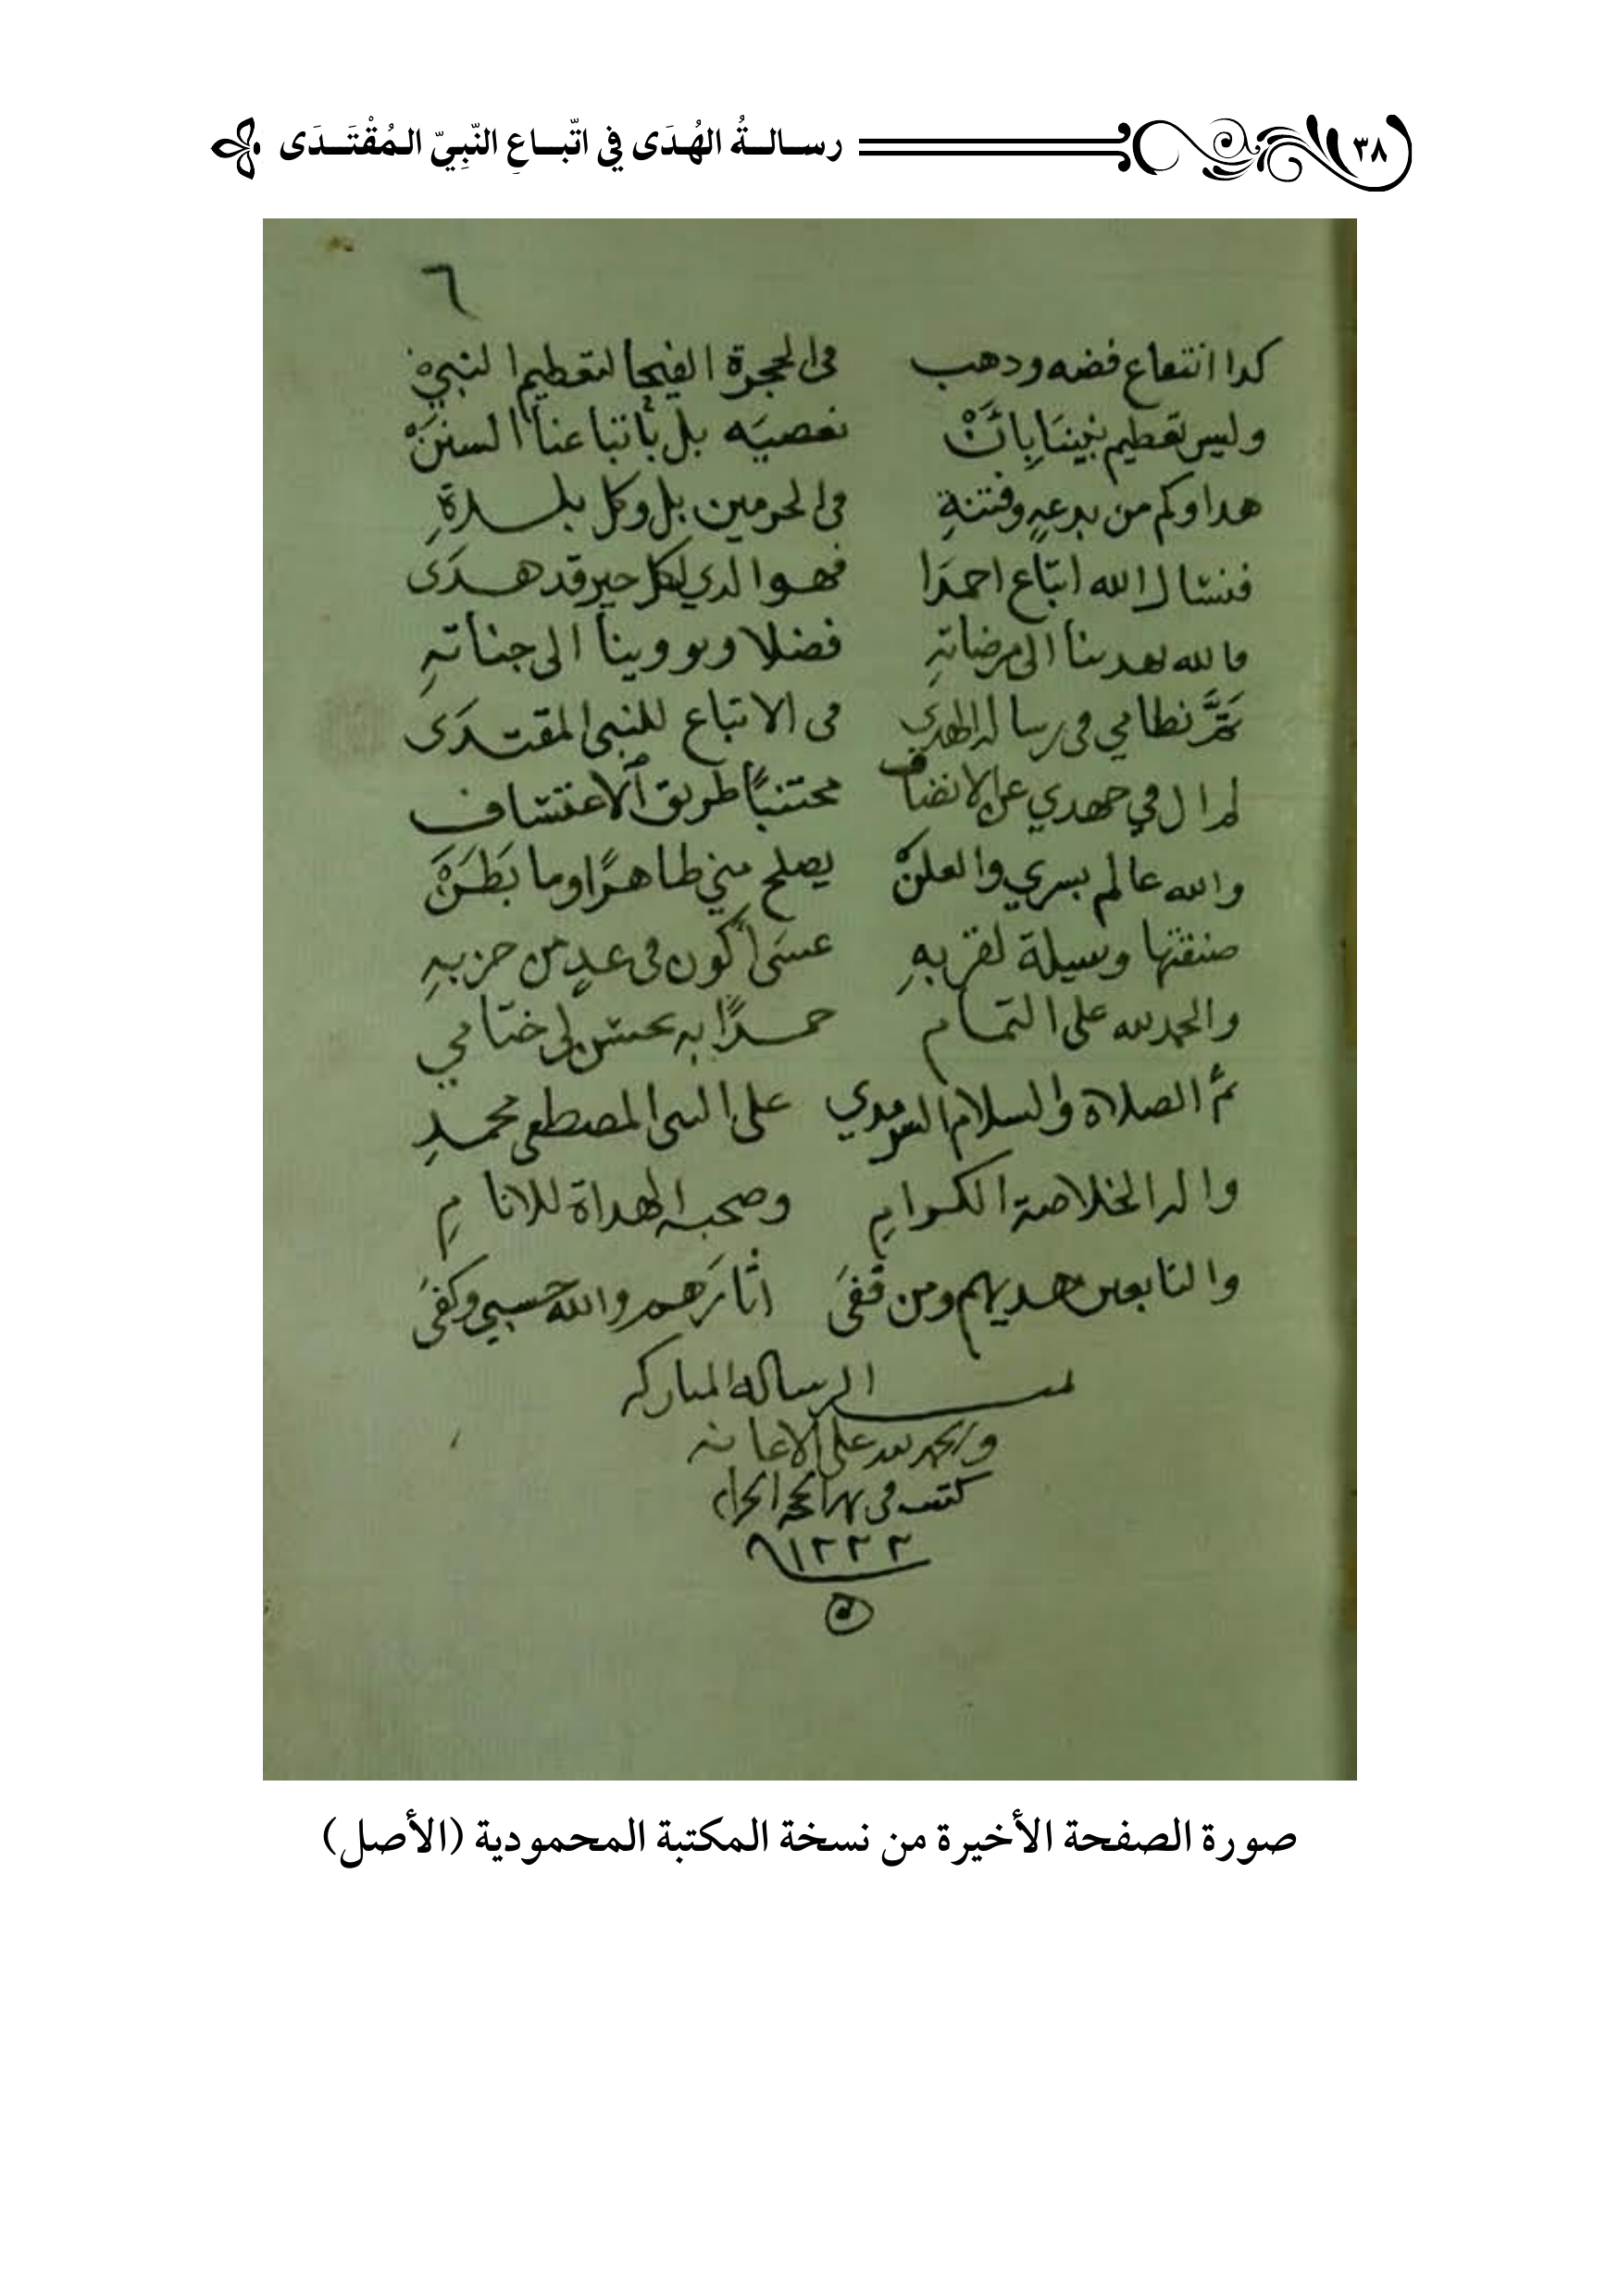 ٣٨ رسالةُ الهُدَى في اتّباعِ النّبِيّ المُقْتَدَى
٦
كدا انتفاع فضه ودهب في الحجرة الفيحا لتعظيم النبيْ
وليس تعظيم نبينَا بِانَّْ نعصيَه بل بأتباعنا السننَْ
هدا وكم من بدعهٍ وفتنةِ في الحرمين بل وكل بلدةِ
فنسال الله اتّباع احمدَا فهو الدي لكل خير قد هدَى
فالله يهدينا الى مرضاتهِ فضلا ويووينا الى جناتهِ
تمَّ نظامي في رساله الهدي في الاتباع للنبي المقتدَى
لم ال في جهدي عن الانصاف مجتنبًا طريق الاعتساف
والله عالم بسري والعلنْ يصلح مني ظاهرًا وما بَطَنَْ
صنفتها وسيلة لقربهِ عسَى أكون في غدٍ من حزبهِ
والحمد لله على التمام حمدًا به يحسن لي ختامي
ثمَّ الصلاة والسلام السرمدي على النبي المصطفى محمدِ
واله الخلاصة الكرامِ وصحبه الهداة للانامِ
والتابعين هديهم ومن قفَى اثارَهم والله حسبي وكفَى
تمت الرساله المباركه
والحمد لله على الاعانه
كتب في الحجه الحرام
١٢٢٢
صورة الصفحة الأخيرة من نسخة المكتبة المحمودية (الأصل)